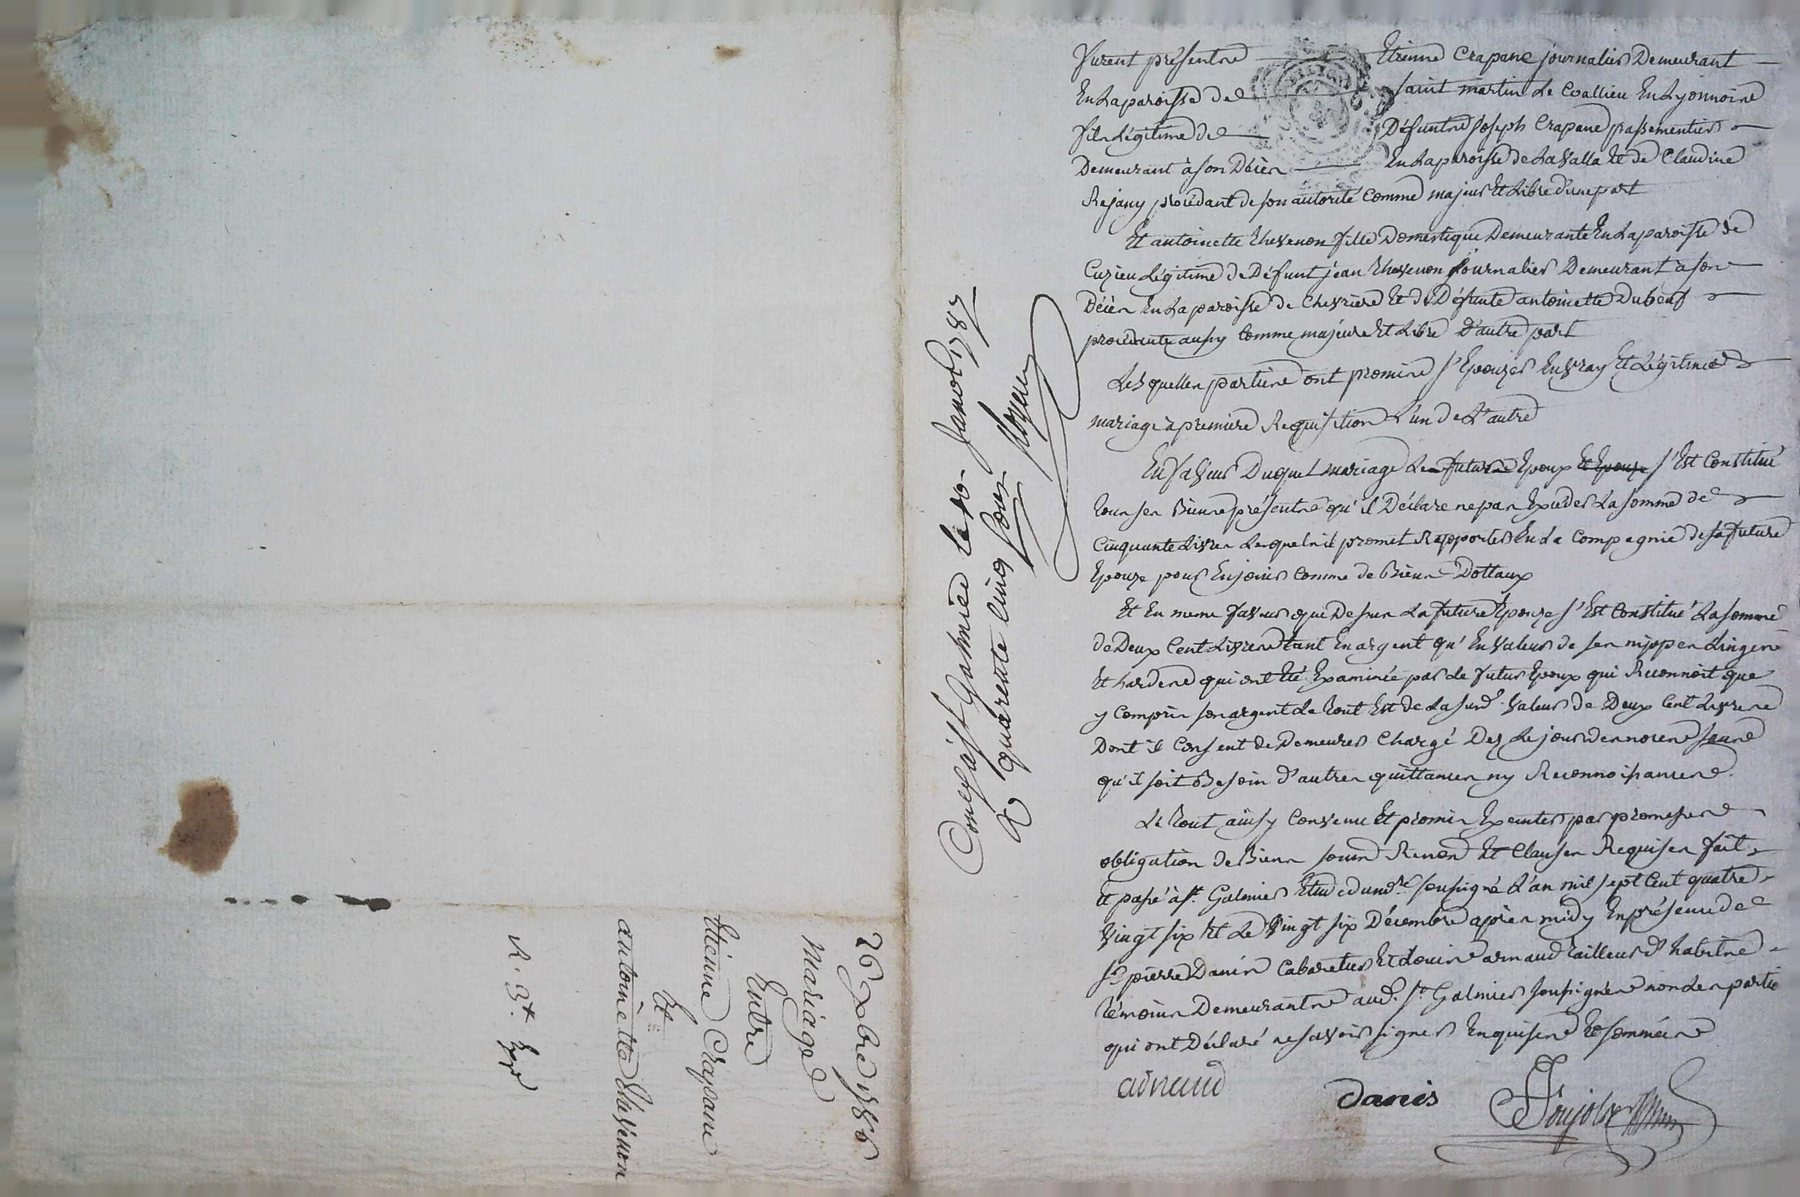 furent présents Etienne Crapane journalier Demeurant
En la paroisse de saint martin Le Coallieu En Lyonnoire
fils Légitime de Défunt Joseph Crapane passementier
Demeurant à son Décès En La paroisse de La Valla Et de Claudine
Rejany procédant de son autorité Comme majeur Et Libre d'une part
Et antoinette Thevenon fille Domestique Demeurante En La paroisse de
Cuzieu Légitime de Défunt jean Thevenon Journalier Demeurant à son
Décès En La paroisse de Chevrière Et de Défunte antoinette Dubœuf
procedante aussy Comme majeure Et Libre D'autre part
Lesquelles parties ont promis s'Epouzer En vray Et Légitime
mariage à première Requisition L'un de L'autre
En faveur Duquel mariage Le futur Epoux Et Epouze s'Est Constitué
Tous ses Biens présents qu'il Déclare ne pas Exceder La somme de
Cinquante Livres Lesquels il promet Rapporter En La Compagnie de sa future
Epouze pour En jouir Comme de Biens Dottaux
Et En meme faveur que Dessus La future Epouze s'Est Constitué La somme
de Deux Cent Livres tant En argent qu'En Valeur de ses nippes Linges
Et hardes qui ont Eté Examinés par Le futur Epoux qui Reconnoit que
y Compris son argent Le Tout Est de La sud. Valeur de Deux Cent Livres
Dont il Consent de Demeurer Chargé Dez Le jour des noces sans
qu'il soit Besoin d'autres quittances ny Reconnoissances.
Le Tout ainsy Convenu Et promis Executer par promesses
obligation de Biens soum Renon Et Clauses Requises fait
Et passé à St. Galmier Etude du nre. soussigné L'an mil sept Cent quatre
Vingt six Et Le Vingt six Décembre après midy En présence de
sr. pierre Danis Cabaretier Et Louis arnaud tailleur d'habits
Témoins Demeurants aud. St. Galmier soussignés non Les parties
qui ont Déclaré ne savoir signer Enquises Et sommées
arnaud
Danis
Controllé à St Galmier Le 10 Janvier 1787
R quarente Cinq sous
26 Xbre 1786
Mariage
Entre
Etienne Crapane
Et
antoinette thevenon
R. 3#
Exp